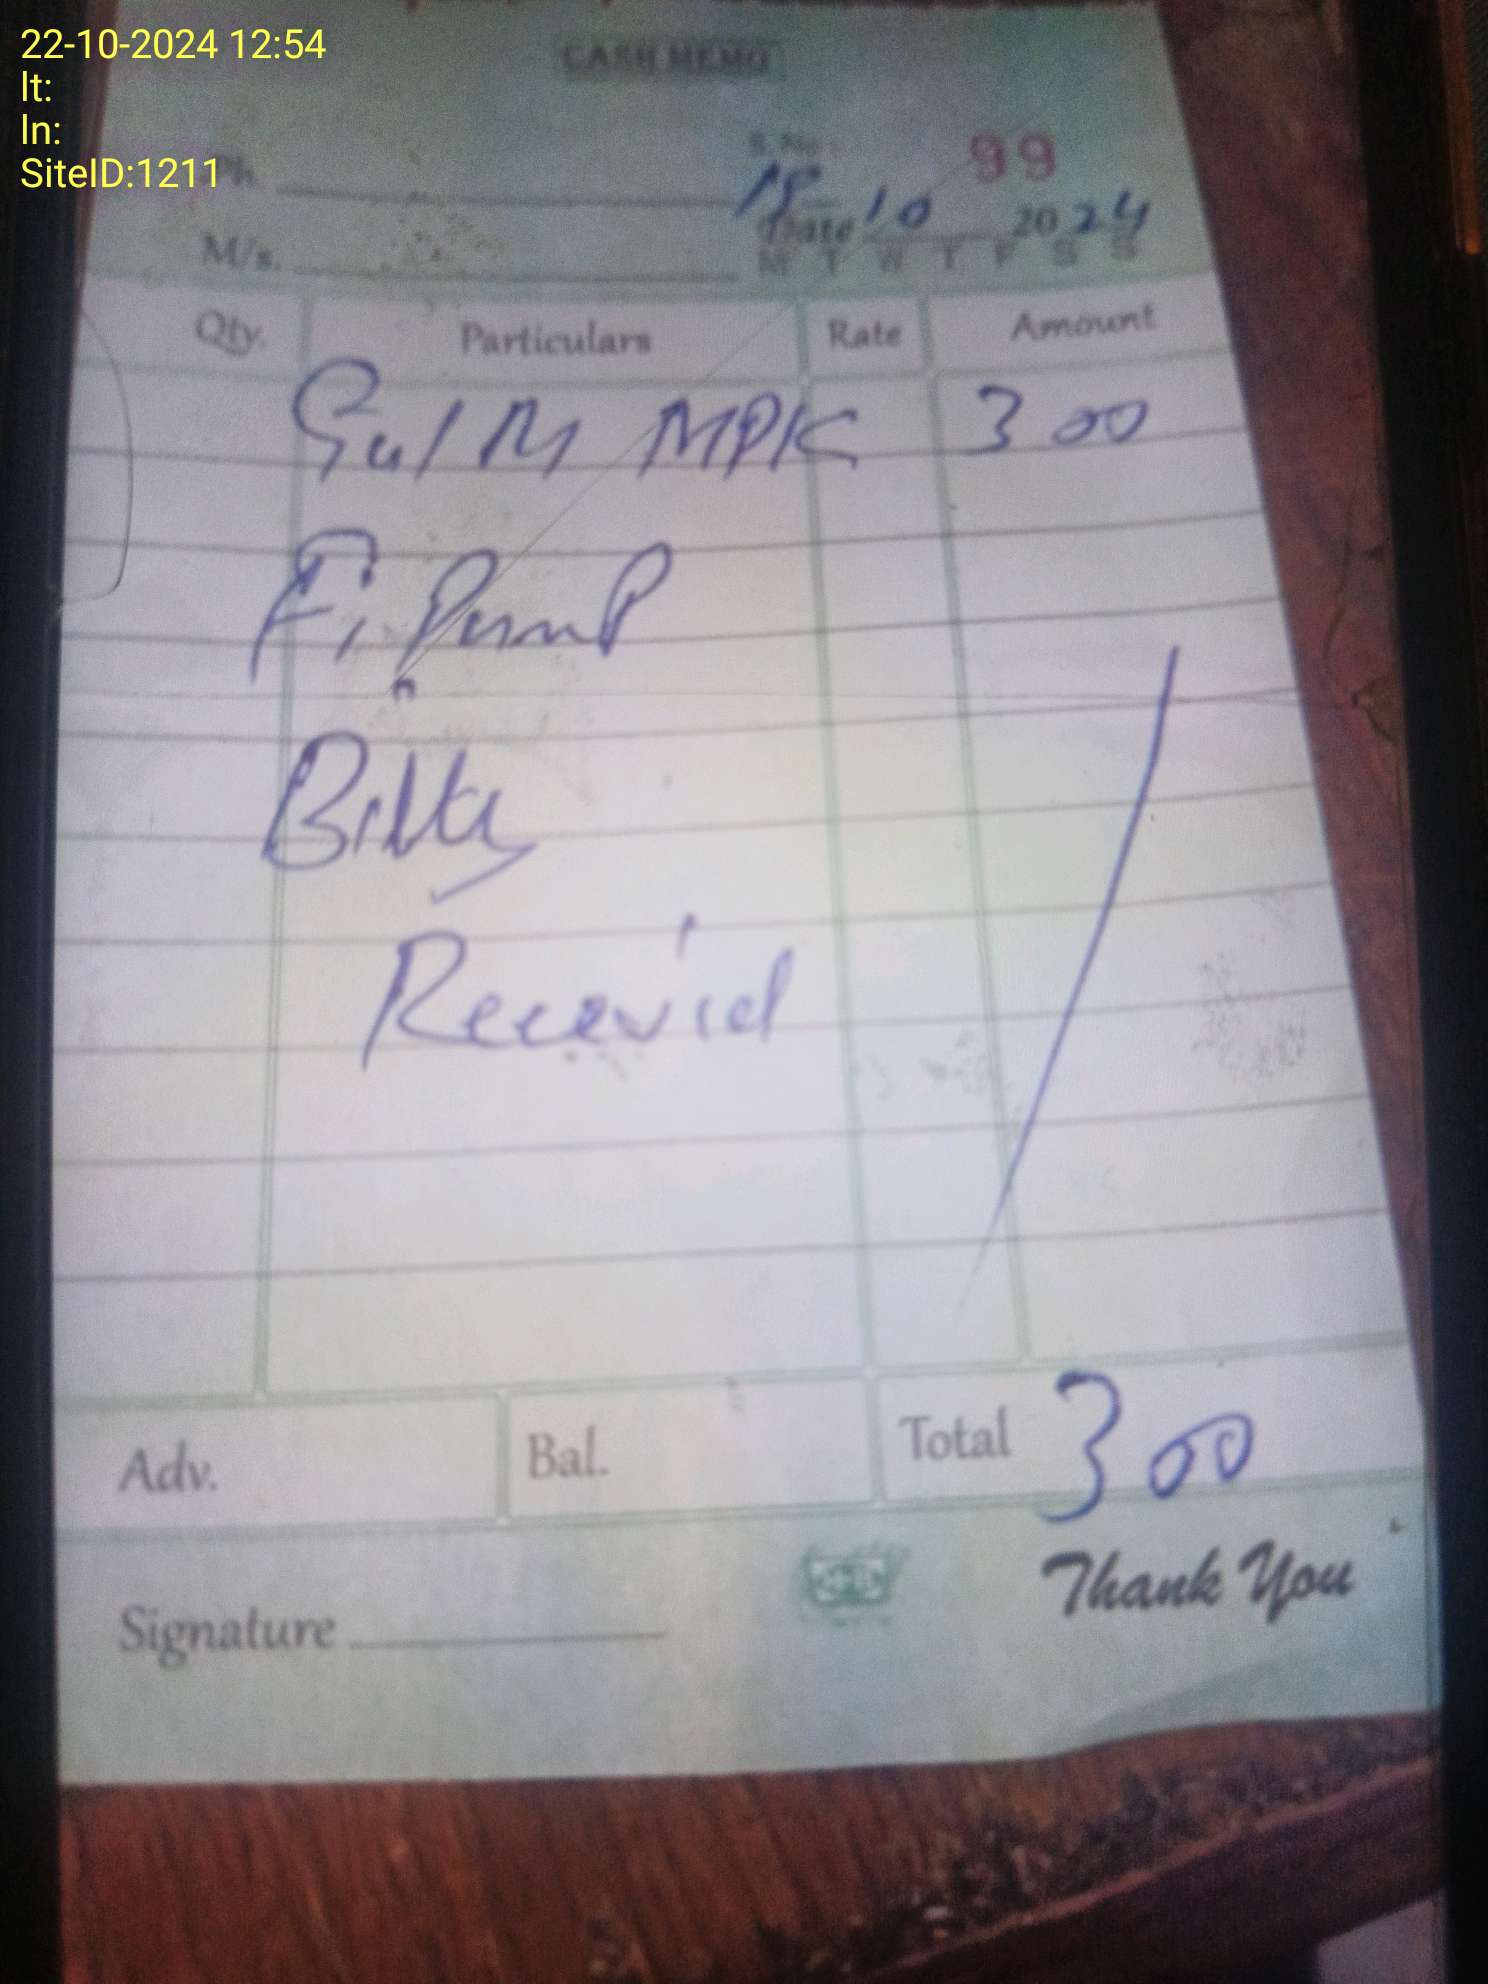 22-10-2024 12:54
lt:
ln:
SiteID:1211
CASH MEMO
Ph.
S.No 99
18 Date 10 2024
M/s.
M T W T F S S
Qty. Particulars Rate Amount
MPK 300
F. PumP
Bilty
Recevied
Adv. Bal. Total 300
Signature
Thank You